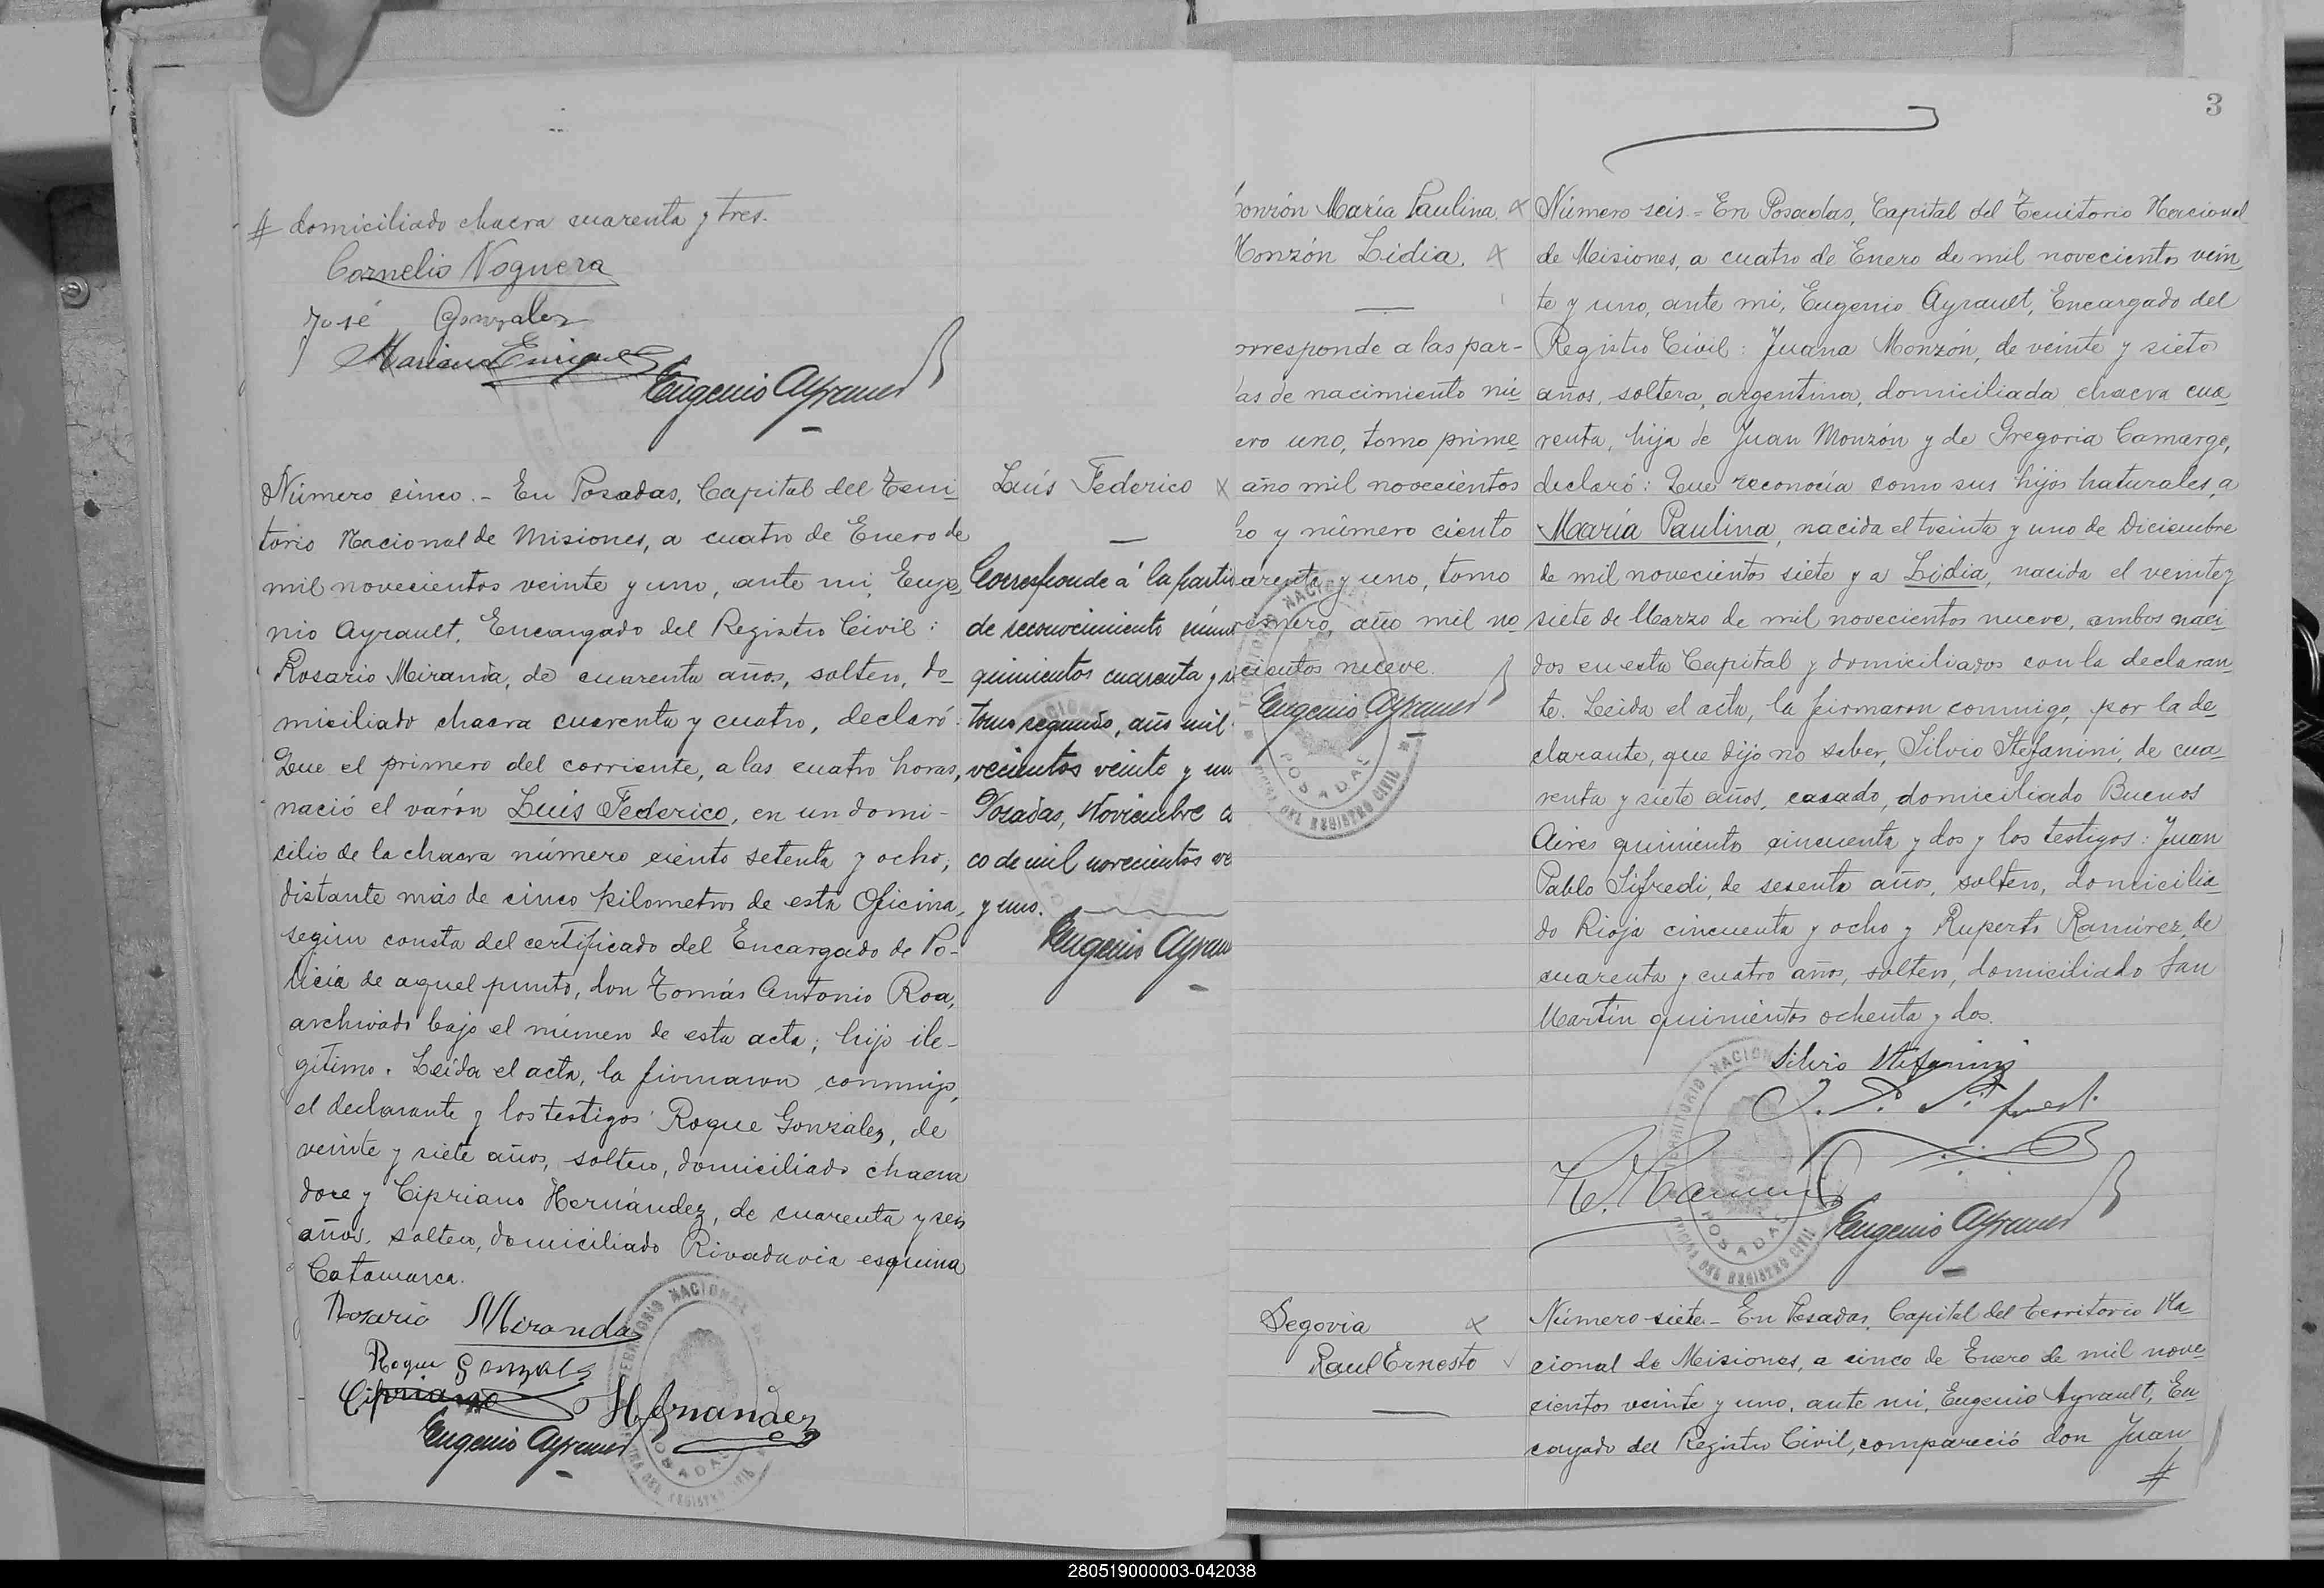 # domiciliado chacra cuarenta y tres.
Cornelio Noguera
José Gonzalez
Mariano Enriquez
Eugenio Ayrault
Número cinco. - En Posadas, Capital del Terri
torio Nacional de Misiones, a cuatro de Enero de
mil novecientos veinte y uno, ante mi, Euge
nio Ayrault, Encargado del Registro Civil:
Rosario Miranda, de cuarenta años, soltero, do
miciliado chacra cuarenta y cuatro, declaró:
Que el primero del corriente, a las cuatro horas,
nació el varón Luis Federico, en un domi-
cilio de la chacra número ciento setenta y ocho,
distante más de cinco kilometros de esta Oficina,
según consta del certificado del Encargado de Po-
licía de aquel punto, don Tomás Antonio Roa,
archivado bajo el número de esta acta; hijo ile-
gítimo. Leída el acta, la firmaron conmigo,
el declarante y los testigos Roque González, de
veinte y siete años, soltero, domiciliado chacra
doce y Cipriano Hernández, de cuarenta y seis
años, soltero, domiciliado Rivadavia esquina
Catamarca.
Rosario Miranda
Roque Gonzalez
Cipriano Hernandez
Eugenio Ayrault
TERRITORIO NACIONAL
POSADAS
OFICINA DEL REGISTRO CIVIL
Luís Federico x
Corresponde á la parti
de reconocimiento núm
quinientos cuarenta y
tomo segundo, año mil
vecientos veinte y un
Posadas, Noviembre
co de mil novecientos ve
y uno.
Eugenio Ayrau
3
onzón María Paulina. x
Monzón Lidia. x
orresponde a las par-
das de nacimiento nú
ero uno, tomo prime
año mil novecientos
ho y número ciento
arenta y uno, tomo
rimero, año mil no
cientos nueve.
Eugenio Ayrault
NACIONAL
POSADAS
OFICINA DEL REGISTRO CIVIL
Número seis. - En Posadas, Capital del Territorio Nacional
de Misiones, a cuatro de Enero de mil novecientos vein
te y uno, ante mi, Eugenio Ayrault, Encargado del
Registro Civil: Juana Monzón, de veinte y siete
años, soltera, argentina, domiciliada chacra cua
renta, hija de Juan Monzón y de Gregoria Camargo,
declaró: Que reconocía como sus hijos naturales, a
María Paulina, nacida el treinta y uno de Diciembre
de mil novecientos siete y a Lidia, nacida el veinte y
siete de Marzo de mil novecientos nueve, ambos naci
dos en esta Capital y domiciliados con la declaran
te. Leída el acta, la firmaron conmigo, por la de
clarante, que dijo no saber, Silvio Stefanini, de cua
renta y siete años, casado, domiciliado Buenos
Aires quinientos cincuenta y dos y los testigos: Juan
Pablo Sifredi, de sesenta años, soltero, domicilia
do Rioja cincuenta y ocho y Ruperto Ramírez, de
cuarenta y cuatro años, soltero, domiciliado San
Martín quinientos ochenta y dos.
Silvio Stefanini
R. Ramirez
Eugenio Ayrault
TERRITORIO NACIONAL
POSADAS
OFICINA DEL REGISTRO CIVIL
Segovia x
Raul Ernesto
Número siete. - En Posadas, Capital del Territorio Na
cional de Misiones, a cinco de Enero de mil nove
cientos veinte y uno, ante mi, Eugenio Ayrault, En
cargado del Registro Civil, compareció don Juan
#
280519000003-042038